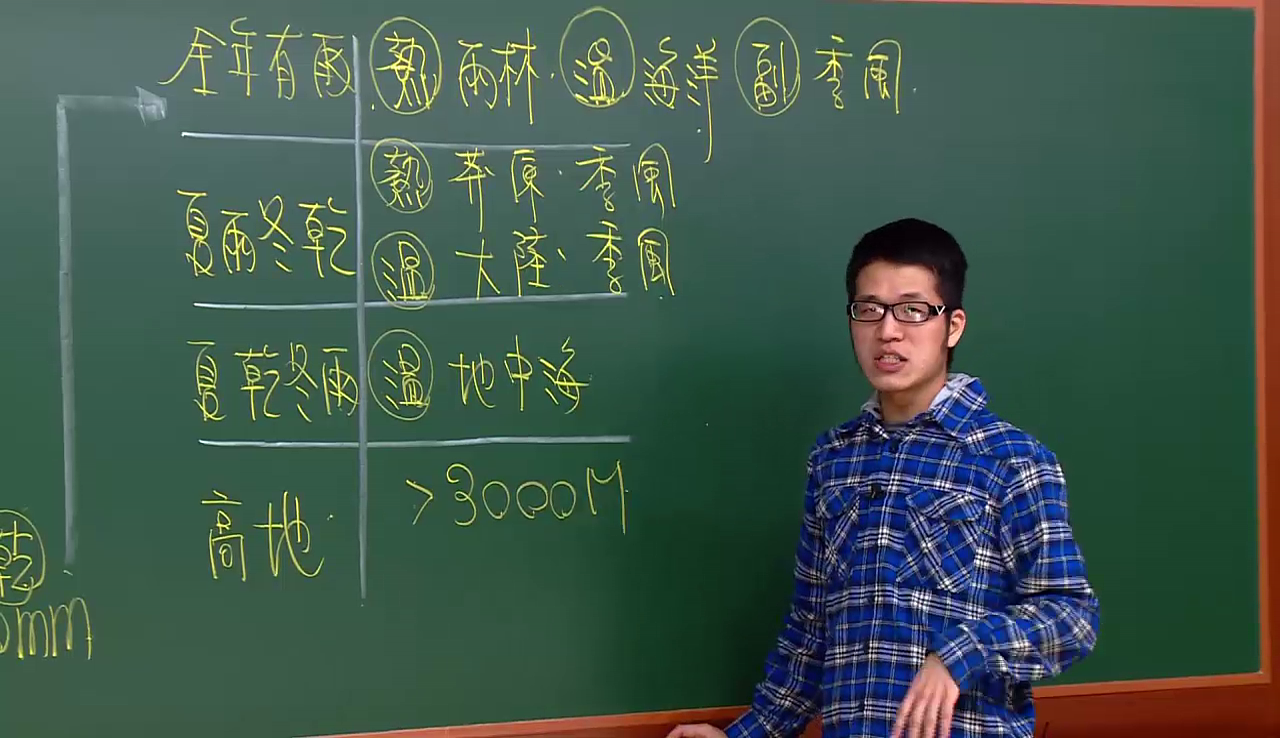 全年有雨 熱 雨林、溫 海洋 副 季風
熱 莽原、季風
夏雨冬乾
溫 大陸、季風
夏乾冬雨 溫 地中海
高地 >3000M
乾
mm